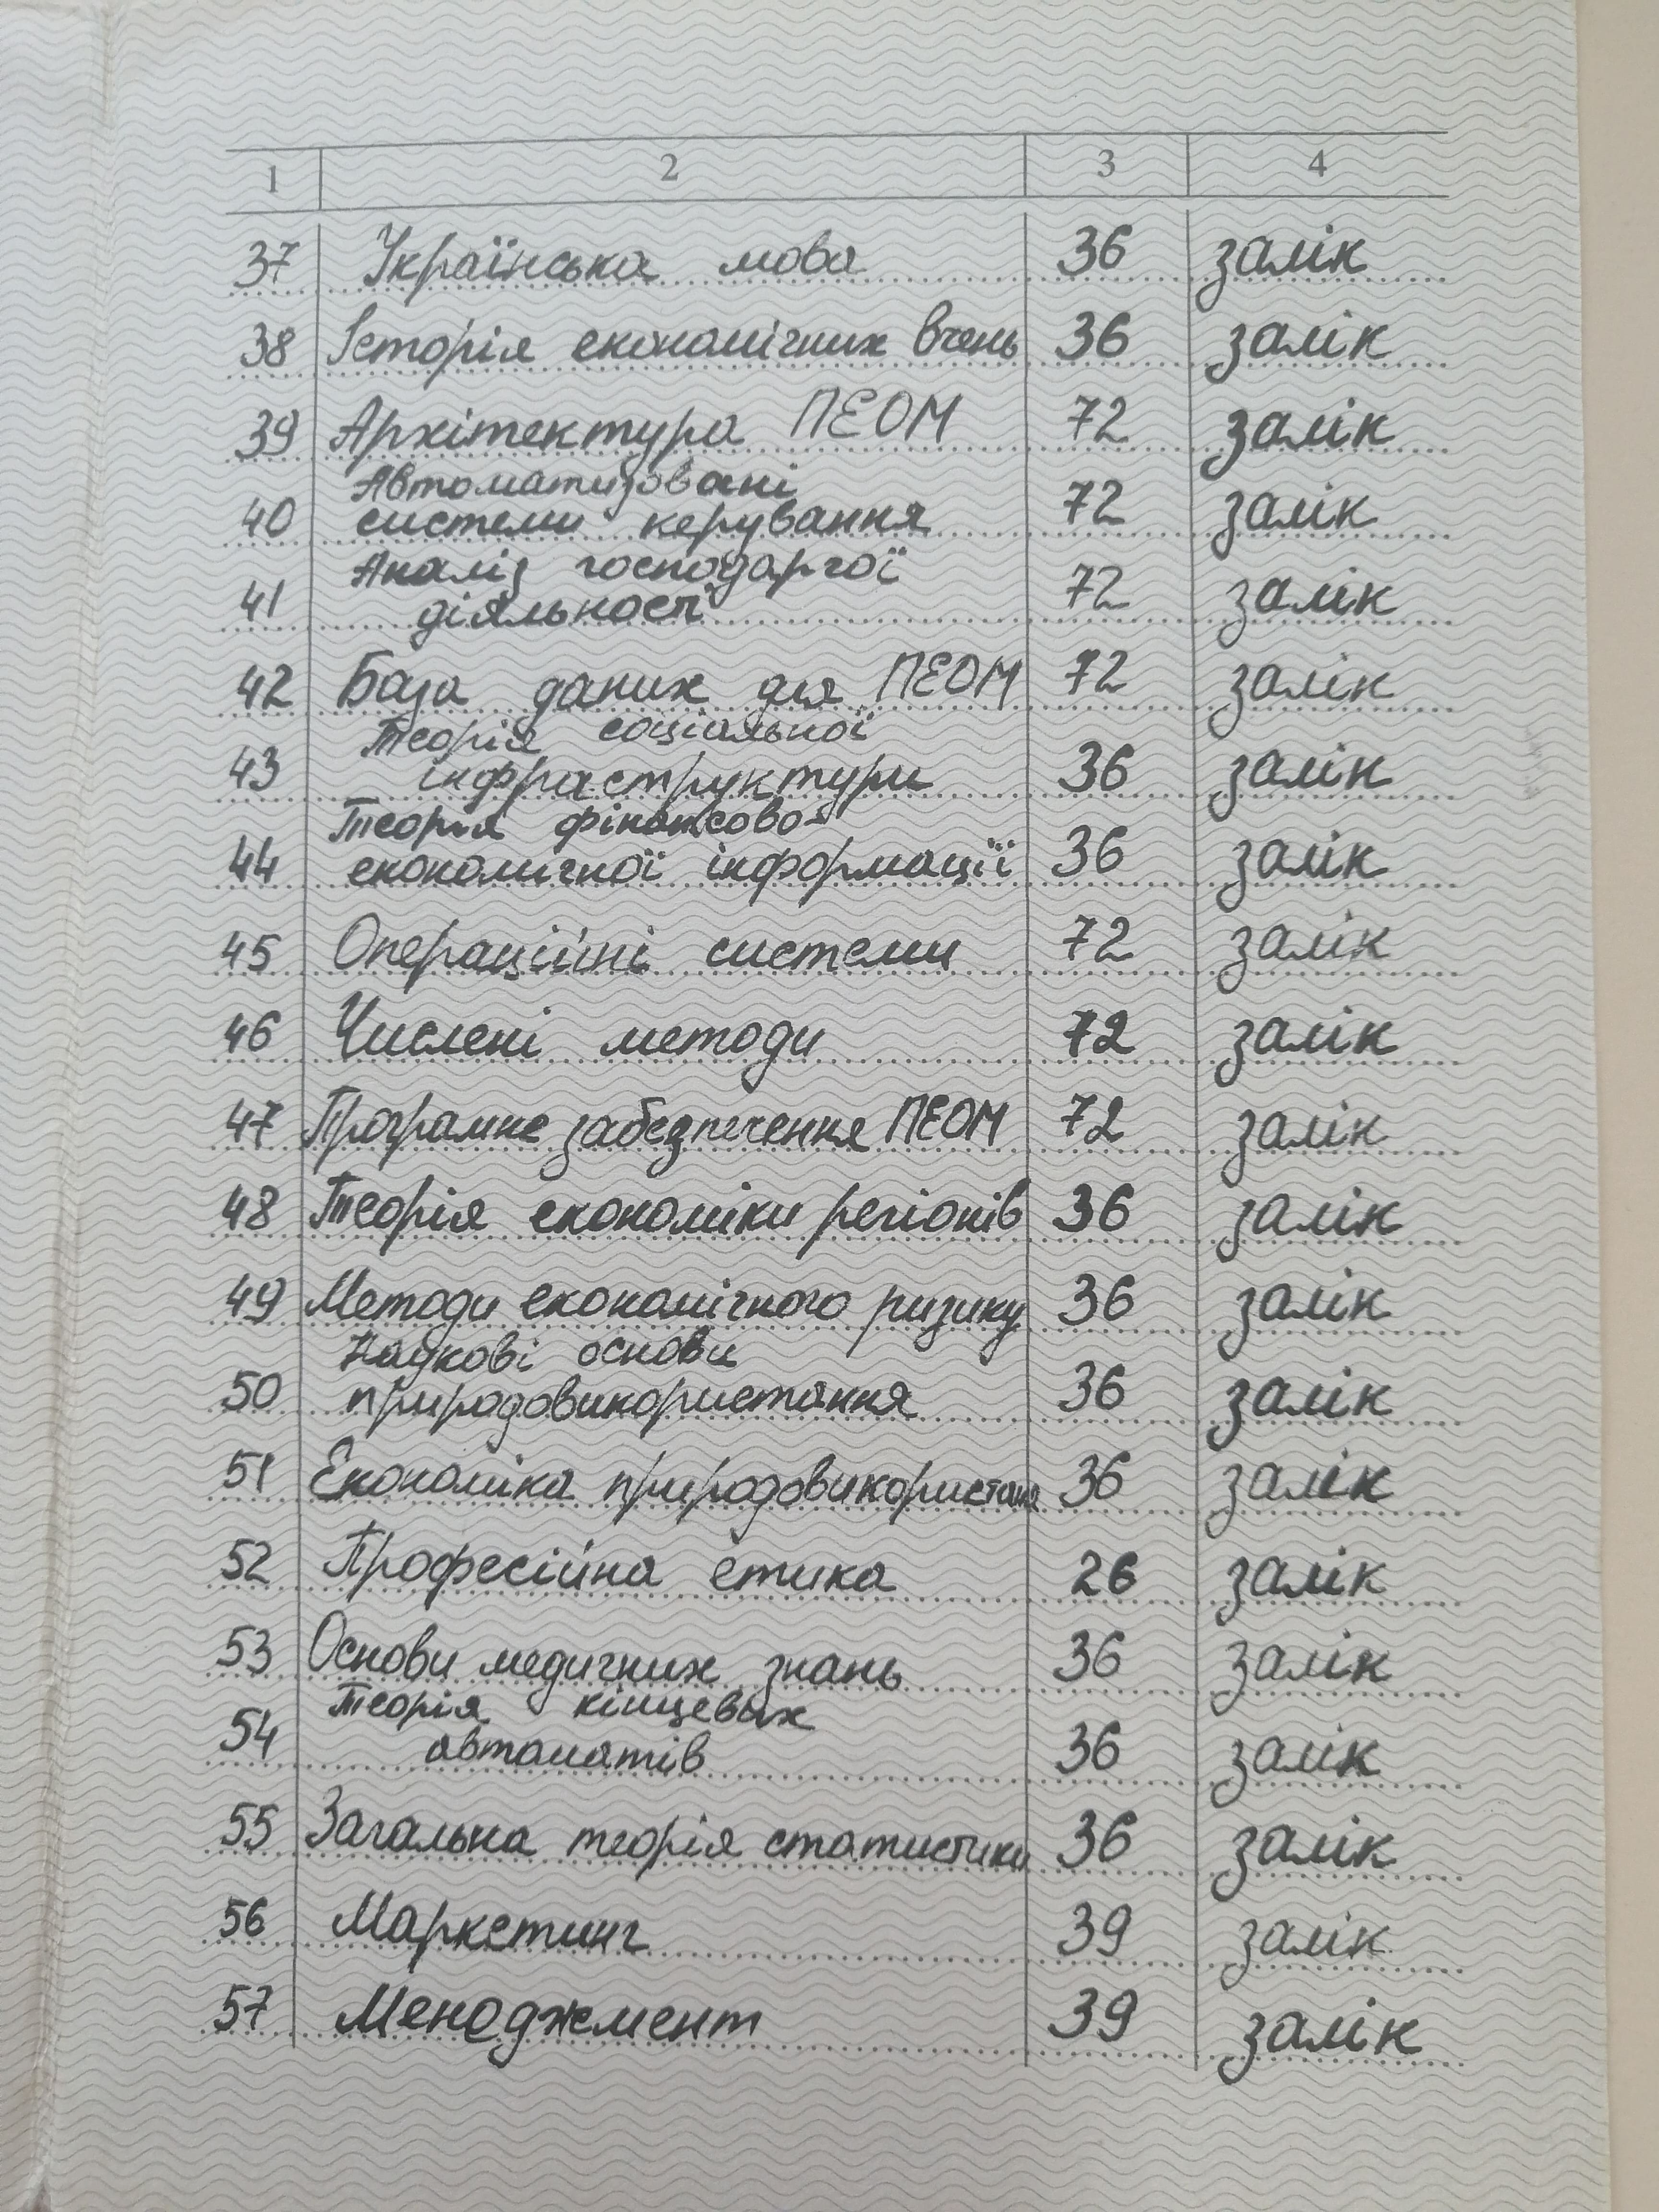 1 2 3 4
37 Українська мова 36 залік
38 Історія економічних вчень 36 залік
39 Архітектура ПЕОМ 72 залік
Автоматизовані
40 системи керування 72 залік
Аналіз господарчої
41 діяльності 72 залік
42 База даних для ПЕОМ 72 залік
Теорія соціальної
43 інфраструктури 36 залік
Теорія фінансово-
44 економічної інформації 36 залік
45 Операційні системи 72 залік
46 Числені методи 72 залік
47 Програмне забезпечення ПЕОМ 72 залік
48 Теорія економіки регіонів 36 залік
49 Методи економічного ризику 36 залік
Наукові основи
50 природовикористання 36 залік
51 Економіка природовикористання 36 залік
52 Професійна етика 26 залік
53 Основи медичних знань 36 залік
Теорія кінцевих
54 автоматів 36 залік
55 Загальна теорія статистики 36 залік
56 Маркетинг 39 залік
57 Менеджмент 39 залік